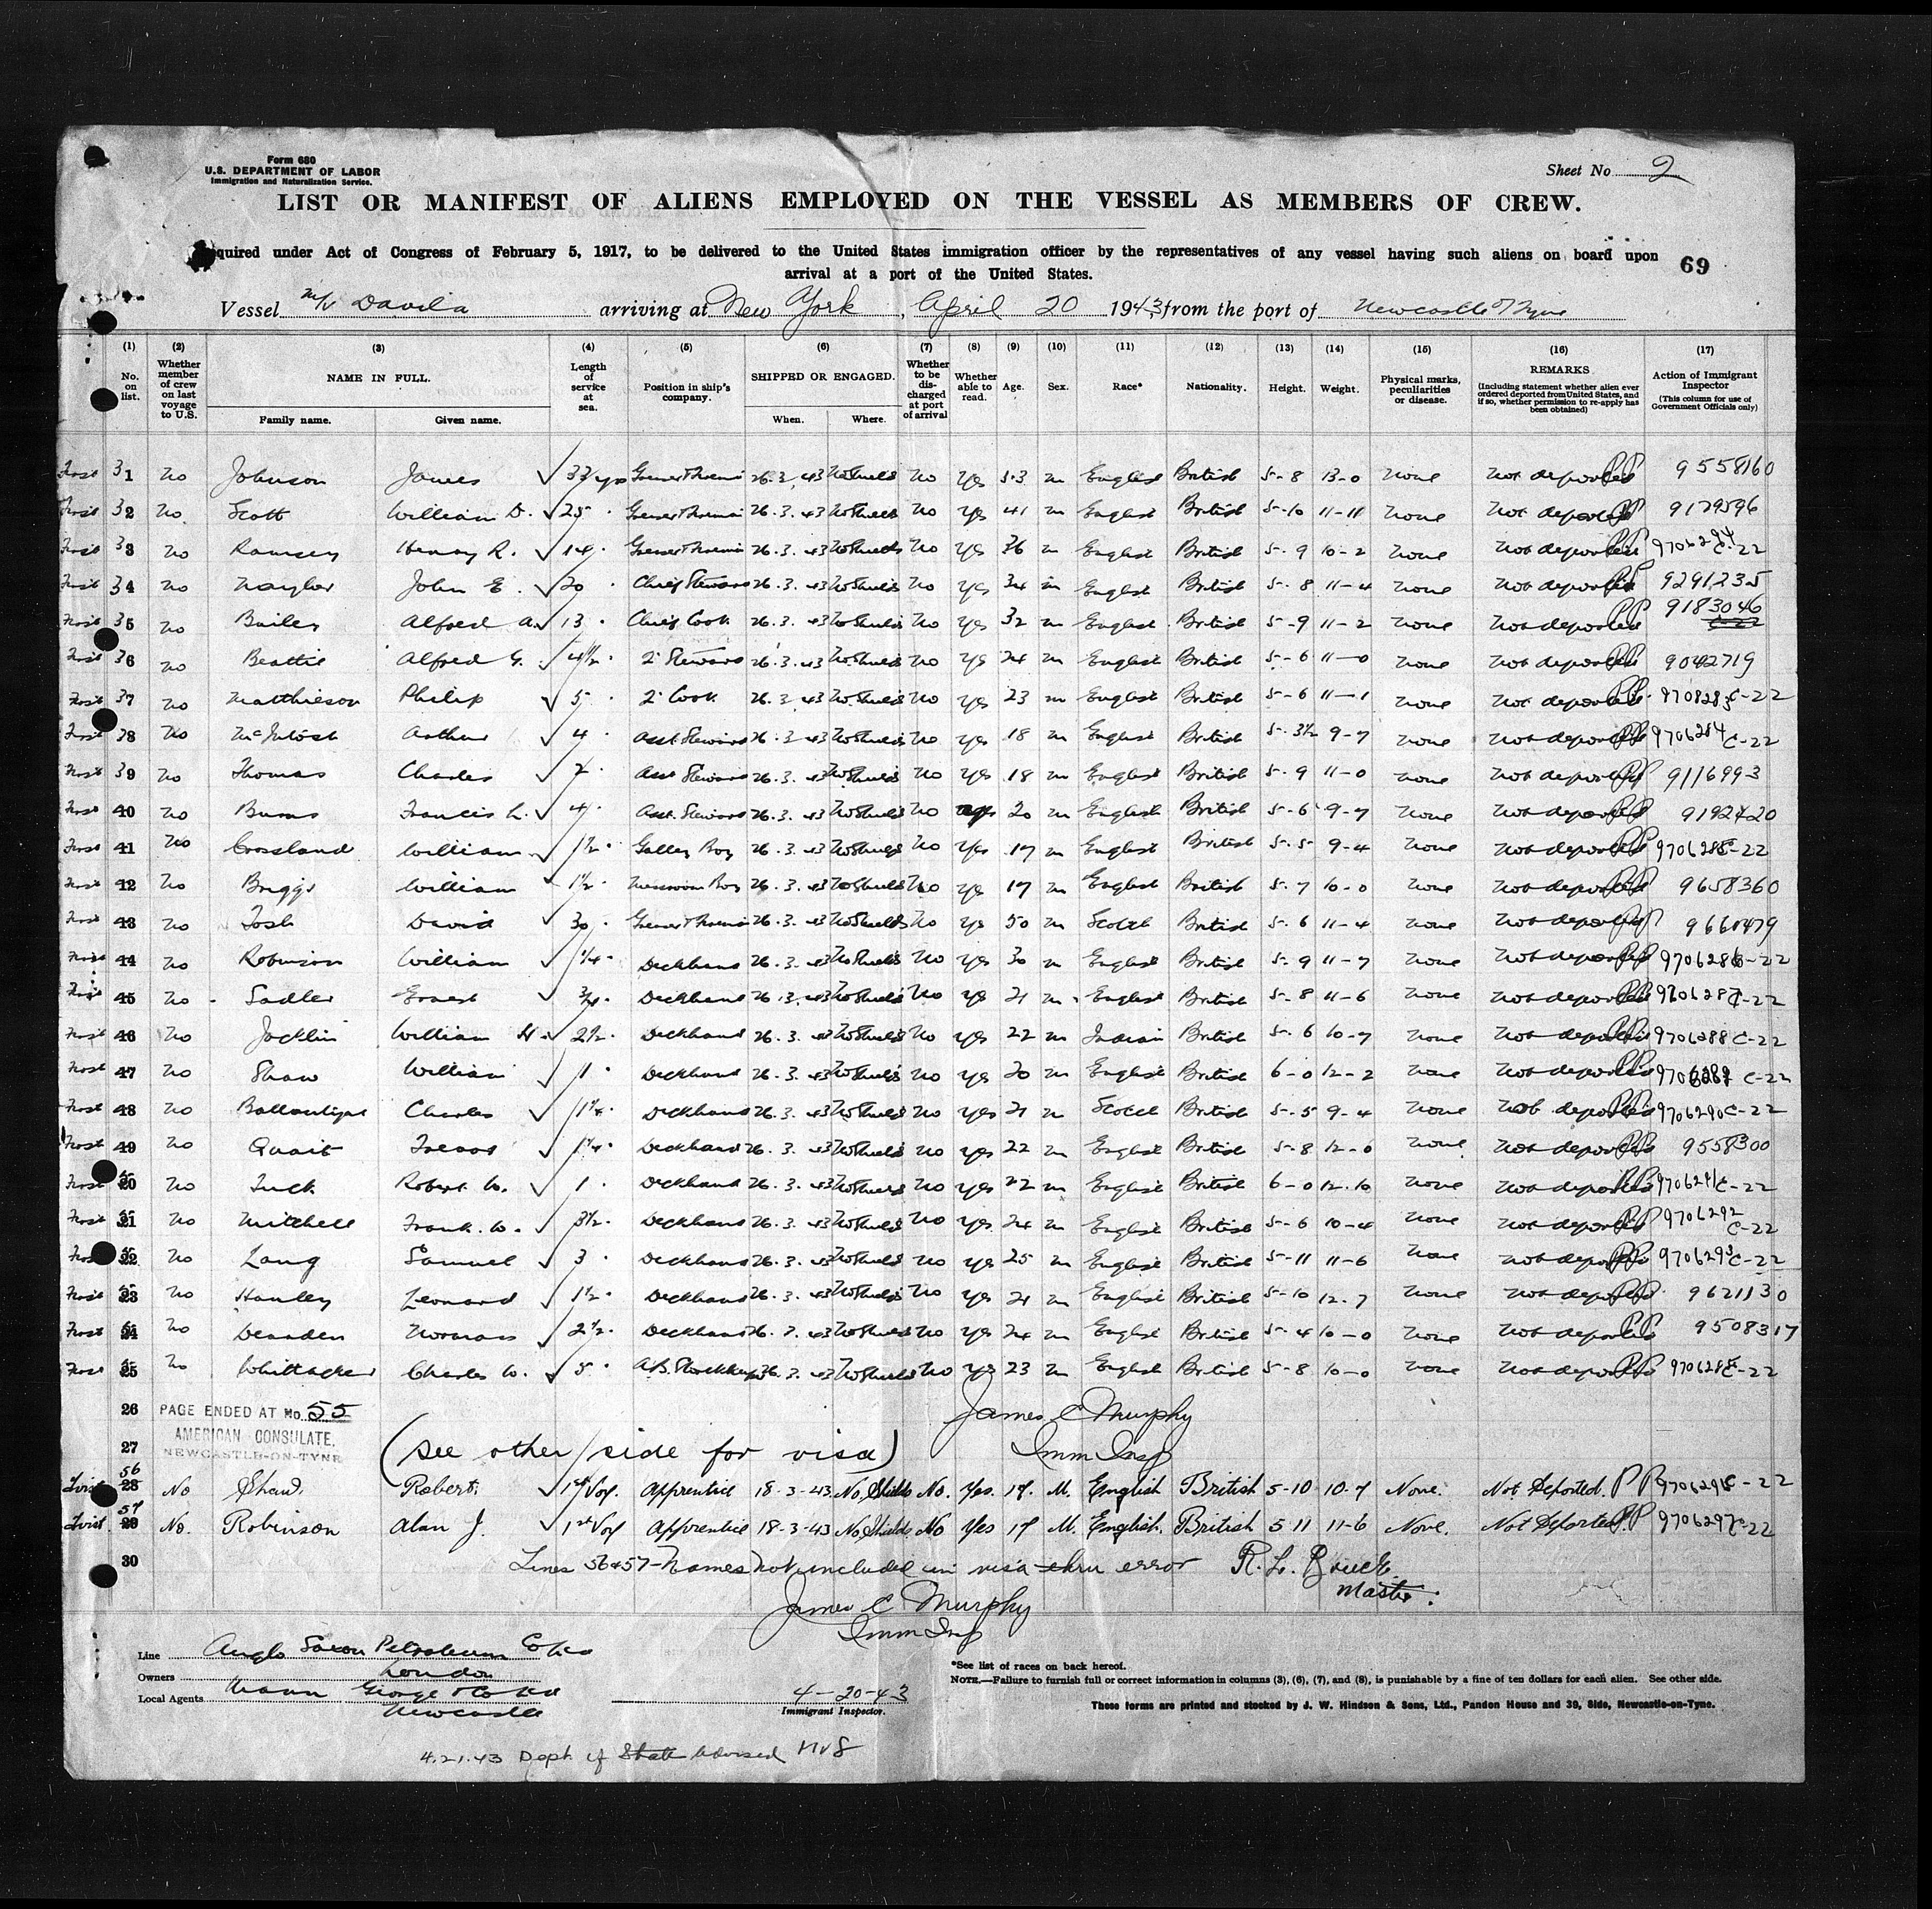 Form 680
U.S. DEPARTMENT OF LABOR
Immigration and Naturalization Service.
Sheet No. 2
LIST OR MANIFEST OF ALIENS EMPLOYED ON THE VESSEL AS MEMBERS OF CREW.
quired under Act of Congress of February 5, 1917, to be delivered to the United States immigration officer by the representatives of any vessel having such aliens on board upon
arrival at a port of the United States.
69
Vessel M/V Davila arriving at New York, April 20 1943 from the port of Newcastle Tyne
(1) (2) (3) (4) (5) (6) (7) (8) (9) (10) (11) (12) (13) (14) (15) (16) (17)
No. on list.
Whether member of crew on last voyage to U.S.
NAME IN FULL.
Family name. Given name.
Length of service at sea.
Position in ship's company.
SHIPPED OR ENGAGED.
When. Where.
Whether to be discharged at port of arrival
Whether able to read.
Age.
Sex.
Race*
Nationality.
Height.
Weight.
Physical marks, peculiarities or disease.
REMARKS
(Including statement whether alien ever ordered deported from United States, and if so, whether permission to re-apply has been obtained)
Action of Immigrant Inspector
(This column for use of Government Officials only)
31 No Johnson James 33 yrs 26.3.43 No Shields No Yes 53 M English British 5-8 13-0 None Not deported PP 9558160
32 No Scott William D. 25 26.3.43 No Shields No Yes 41 M English British 5-10 11-11 None Not deported PP 9179596
33 No Ramsey Henry R. 14 26.3.43 No Shields No Yes 36 M English British 5-9 10-2 None Not deported PP 9706294 C-22
34 No Naylor John E. 20 Chief Steward 26.3.43 No Shields No Yes 34 M English British 5-8 11-4 None Not deported PP 9291235
35 No Bailey Alfred A. 13 Chief Cook 26.3.43 No Shields No Yes 32 M English British 5-9 11-2 None Not deported PP 9183046
36 No Beattie Alfred G. 4½ 2 Steward 26.3.43 No Shields No Yes 24 M English British 5-6 11-0 None Not deported PP 9042719
37 No Matthieson Philip 5 2 Cook 26.3.43 No Shields No Yes 23 M English British 5-6 11-1 None Not deported PP 970828 C-22
38 No McIntosh Arthur 4 Asst Steward 26.3.43 No Shields No Yes 18 M English British 5-3½ 9-7 None Not deported PP 9706284 C-22
39 No Thomas Charles 2 Asst Steward 26.3.43 No Shields No Yes 18 M English British 5-9 11-0 None Not deported PP 9116993
40 No Burns Francis L. 4 Asst. Steward 26.3.43 No Shields No Yes 20 M English British 5-6 9-7 None Not deported PP 9192420
41 No Crossland William 1½ Galley Boy 26.3.43 No Shields No Yes 17 M English British 5-5 9-4 None Not deported PP 9706285 C-22
42 No Briggs William 1½ Messroom Boy 26.3.43 No Shields No Yes 17 M English British 5-7 10-0 None Not deported PP 9658360
43 No Tosh David 30 26.3.43 No Shields No Yes 50 M Scotch British 5-6 11-4 None Not deported PP 9660479
44 No Robinson William 1¼ Deckhand 26.3.43 No Shields No Yes 30 M English British 5-9 11-7 None Not deported PP 9706286 C-22
45 No Sadler Ernest ¾ Deckhand 26.3.43 No Shields No Yes 21 M English British 5-8 11-6 None Not deported PP 9706287 C-22
46 No Jacklin William H. 2½ Deckhand 26.3.43 No Shields No Yes 22 M Indian British 5-6 10-7 None Not deported PP 9706288 C-22
47 No Shaw William 1 Deckhand 26.3.43 No Shields No Yes 20 M English British 6-0 12-2 None Not deported PP 9706289 C-22
48 No Ballantyne Charles 1¼ Deckhand 26.3.43 No Shields No Yes 21 M Scotch British 5-5 9-4 None Not deported PP 9706290 C-22
49 No Quait Trevor 1¼ Deckhand 26.3.43 No Shields No Yes 22 M English British 5-8 12-0 None Not deported PP 9558300
50 No Tuck Robert W. 1 Deckhand 26.3.43 No Shields No Yes 22 M English British 6-0 12-10 None Not deported PP 9706291 C-22
51 No Mitchell Frank W. 3½ Deckhand 26.3.43 No Shields No Yes 24 M English British 5-6 10-4 None Not deported PP 9706292 C-22
52 No Lang Samuel 3 Deckhand 26.3.43 No Shields No Yes 25 M English British 5-11 11-6 None Not deported PP 9706293 C-22
53 No Hanley Leonard 1½ Deckhand 26.3.43 No Shields No Yes 21 M English British 5-10 12-7 None Not deported PP 9621130
54 No Dearden Norman 2½ Deckhand 26.3.43 No Shields No Yes 24 M English British 5-4 10-0 None Not deported PP 9508317
55 No Whittacker Charles W. 5 26.3.43 No Shields No Yes 23 M English British 5-8 10-0 None Not deported PP C-22
26 PAGE ENDED AT No. 55 James C Murphy
AMERICAN CONSULATE,
NEWCASTLE-ON-TYNE
27 (see other side for visa) Imm Insp
56 28 No Shaw Robert. 1st Voy. Apprentice 18-3-43 No. Shields No. Yes. 17. M. English British 5-10 10-7 None. Not Deported. PP C-22
57 29 No. Robinson Alan J. 1st Voy Apprentice 18-3-43 No. Shields No Yes 17 M. English. British 5 11 11-6 None. Not Deported. PP 9706297 C-22
30 Lines 56 & 57 - Names not included in visa thru error R. L.
Master.
James C Murphy
Imm Insp
Line Anglo Saxon Petroleum Co Ltd
Owners London
Local Agents Mann George & Co Ltd
Newcastle
4-20-43
Immigrant Inspector.
*See list of races on back hereof.
NOTE.—Failure to furnish full or correct information in columns (3), (6), (7), and (8), is punishable by a fine of ten dollars for each alien. See other side.
These forms are printed and stocked by J. W. Hindson & Sons, Ltd., Pandon House and 39, Side, Newcastle-on-Tyne.
4.21.43 Dept. of State advised